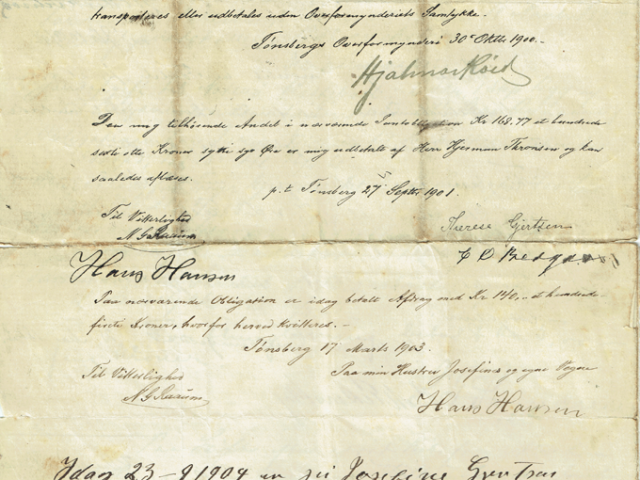 transporteres eller udbetales uden Overformynderiets Samtykke.
Tønsbergs Overformynderi 30te Oktbr 1900.
Hjalmar Røed
Den mig tilhørende Andel i nærværende Panteobligation Kr 168.77 et hundrede
sexti otte Kroner sytti syv Øre er mig udbetalt af Herr Hjerman Thronsen og kan
saaledes aflæses.
p.t. Tønsberg 27 Septbr 1901.
Til Vitterlighed
Therese Gjertsen
Hans Hansen
Paa nærværende Obligation er idag betalt Afdrag med Kr 140,- et hundrede
firti Kroner, hvorfor herved kvitteres. -
Tønsberg 17 Marts 1903.
Til Vitterlighed
Paa min Hustru Josefines og egne Vegne
Hans Hansen
Idag 23-9 1904 er